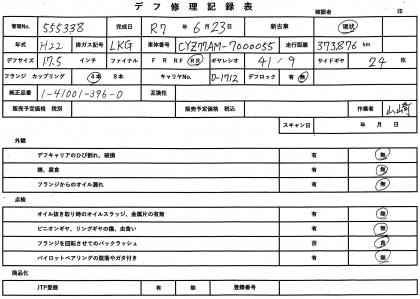 デフ修理記録表
確認者 印
管理No. 555338 完成日 R7 年 6 月 23 日 新古車 現状
年式 H22 排ガス記号 LKG 車体番号 CYZ77AM-7000055 走行距離 373,876 km
デフサイズ 17.5 インチ ファイナル F R RF RR ギヤレシオ 41/9 サイドギヤ 24 枚
フランジ カップリング 4本 8本 キャリヤNo. D-1712 デフロック 有 無
純正品番 1-41001-396-0 互換性
販売予定価格 税別 販売予定価格 税込 作業者 山崎
スキャン日 年 月 日
外観
デフキャリアのひび割れ、破損 有 無
錆、腐食 有 無
フランジからのオイル漏れ 有 無
点検
オイル抜き取り時のオイルスラッジ、金属片の有無 有 無
ピニオンギヤ、リングギヤの傷、虫食い 有 無
フランジを回転させてのバックラッシュ 否 良
パイロットベアリングの脱落やガタ付き 有 無
商品化
JTP登録 有 無 登録番号